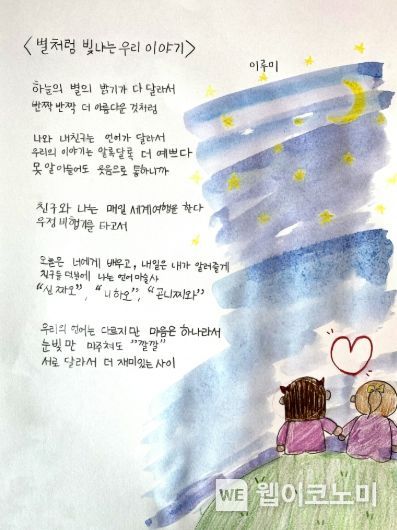 <별처럼 빛나는 우리 이야기>
이루미
하늘의 별의 밝기가 다 달라서
반짝 반짝 더 아름다운 것처럼
나와 내친구는 언어가 달라서
우리의 이야기는 알록달록 더 예쁘다
못 알아들어도 웃음으로 통하니까
친구와 나는 매일 세계여행을 한다
우정 비행기를 타고서
오늘은 너에게 배우고, 내일은 내가 알려줄게
친구들 덕분에 나는 언어마술사
"신짜오", "니하오", "곤니찌와"
우리의 언어는 다르지만 마음은 하나라서
눈빛만 마주쳐도 "깔깔"
서로 달라서 더 재미있는 사이
WE 웹이코노미